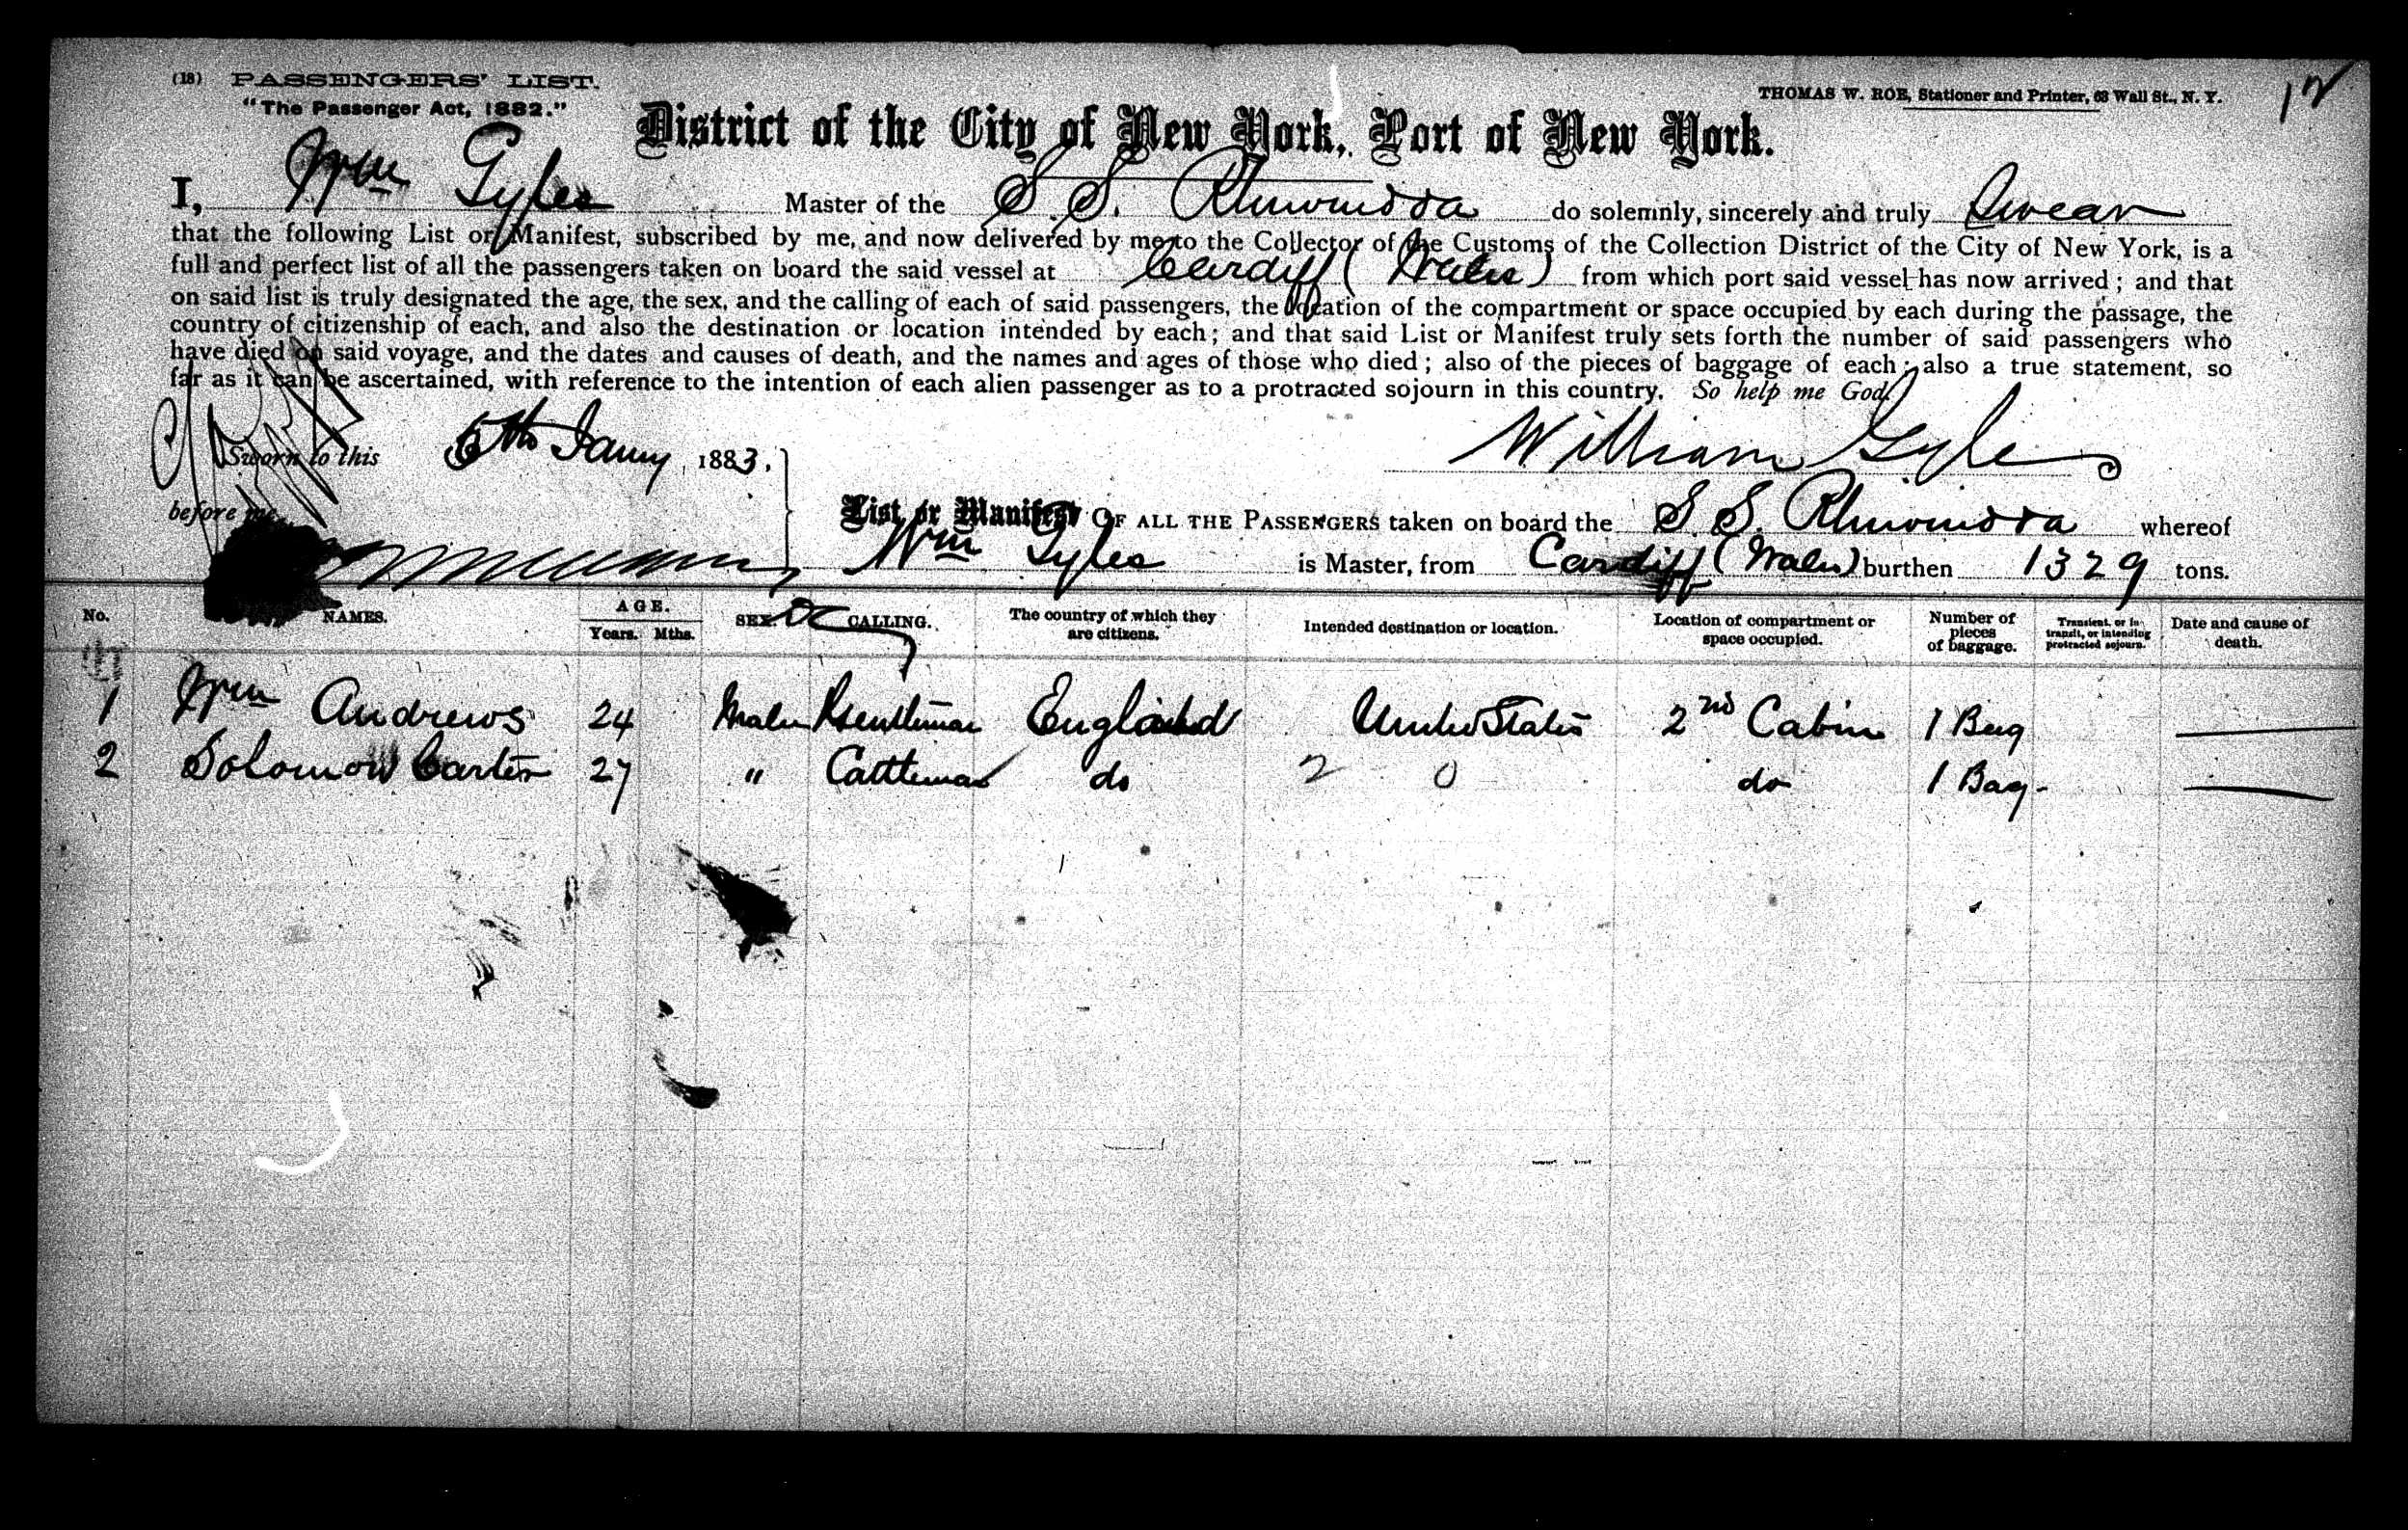 (18) PASSENGERS' LIST.
"The Passenger Act, 1882."
THOMAS W. ROE, Stationer and Printer, 63 Wall St., N. Y.
12
District of the City of New York, Port of New York.
I, Wm Gyles Master of the S. S. do solemnly, sincerely and truly Swear
that the following List or Manifest, subscribed by me, and now delivered by me to the Collector of the Customs of the Collection District of the City of New York, is a
full and perfect list of all the passengers taken on board the said vessel at Cardiff (Wales) from which port said vessel has now arrived; and that
on said list is truly designated the age, the sex, and the calling of each of said passengers, the location of the compartment or space occupied by each during the passage, the
country of citizenship of each, and also the destination or location intended by each; and that said List or Manifest truly sets forth the number of said passengers who
have died on said voyage, and the dates and causes of death, and the names and ages of those who died; also of the pieces of baggage of each; also a true statement, so
far as it can be ascertained, with reference to the intention of each alien passenger as to a protracted sojourn in this country. So help me God.
Sworn to this 5th Jany 1883.
William Gyles
before me
List or Manifest OF ALL THE PASSENGERS taken on board the S. S. whereof
Wm Gyles is Master, from Cardiff (Wales) burthen 1329 tons.
No. NAMES. AGE. Years. Mths. SEX. CALLING. The country of which they are citizens. Intended destination or location. Location of compartment or space occupied. Number of pieces of baggage. Transient, or in transit, or intending protracted sojourn. Date and cause of death.
1 Wm Andrews 24 Male England United States 2nd Cabin 1 Bag
2 Solomon Carter 27 " Cattleman do 2 0 do 1 Bag